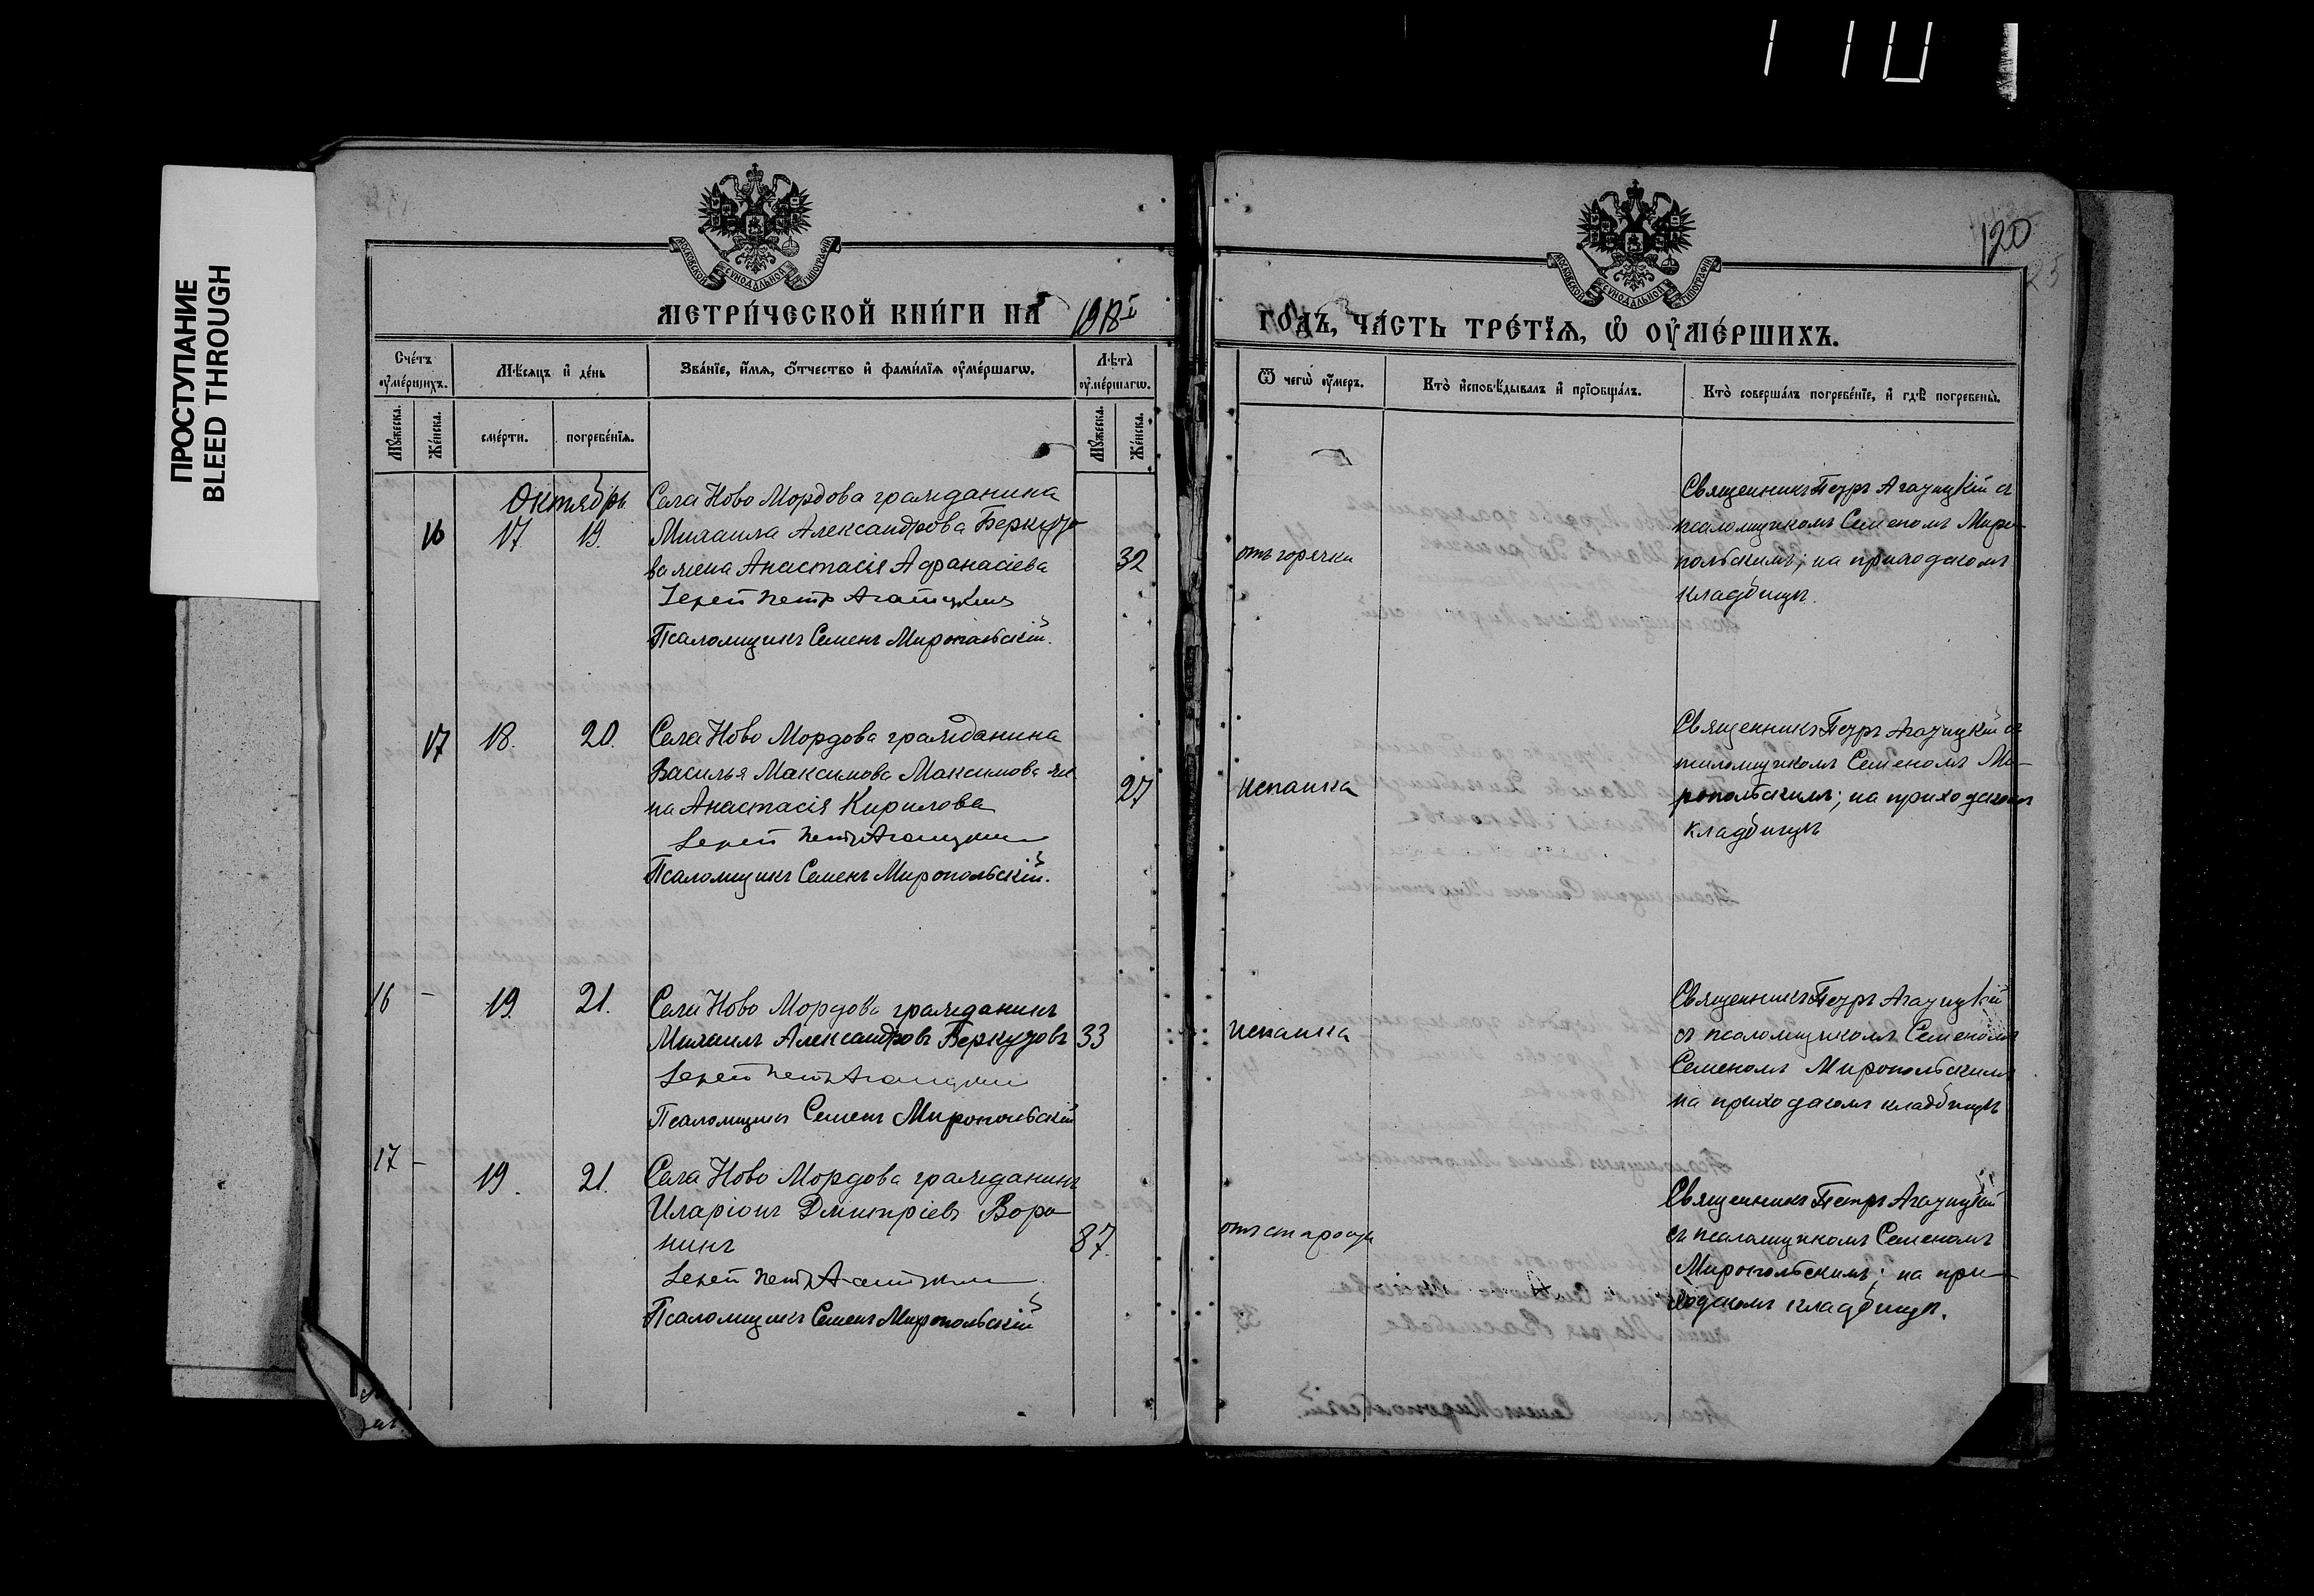 ПРОСТУПАНИЕ
BLEED THROUGH
120
МОСКОВСКОЙ СѴНОДАЛЬНОЙ ТИПОГРАФІИ
МОСКОВСКОЙ СѴНОДАЛЬНОЙ ТИПОГРАФІИ
МЕТРИ́ЧЕСКОЙ КНИ́ГИ НА 1918 г
ГОДЪ, ЧА́СТЬ ТРЕ́ТЇѦ, Ѡ҆ ОУ҆МЕ́РШИХЪ.
Сче́тъ оу҆ме́ршихъ.
Мꙋ́жеска.
Же́нска.
Мѣ́сяцъ и҆ де́нь
сме́рти.
погребе́нїѧ.
Зва́нїе, и҆́мѧ, ѻ҆́тчество и҆ фами́лїѧ оу҆ме́ршагѡ.
Лѣта̀ оу҆ме́ршагѡ.
Мꙋ́жеска.
Же́нска.
Ѿ чегѡ̀ оу҆́меръ.
Кто̀ и҆сповѣ́дывалъ и҆ прїѻбща́лъ.
Кто̀ соверша́лъ погребе́нїе, и҆ гдѣ̀ погребены̀.
Октябрь
16 17. 19.
Села Ново Мордова гражданина
Михаила Александрова Беркузо
ва жена Анастасія Афанасіева
32
Іерей Петръ Агатицкій
Псаломщикъ Семенъ Миропольскій.
отъ горячки
Священникъ Петръ Агатицкій съ
псаломщикомъ Семеномъ Миро-
польскимъ; на приходскомъ
кладбищѣ.
17 18. 20.
Села Ново Мордова гражданина
Василья Максимова Максимова же
на Анастасія Кирилова
27
Іерей Петръ Агатицкій
Псаломщикъ Семенъ Миропольскій.
испанка
Священникъ Петръ Агатицкій съ
псаломщикомъ Семеномъ Ми-
ропольскимъ; на приходскомъ
кладбищѣ
16 - 19 21.
Села Ново Мордова гражданинъ
Михаилъ Александровъ Беркузовъ
33
Іерей Петръ Агатицкій
Псаломщикъ Семенъ Миропольскій
испанка
Священникъ Петръ Агатицкій
съ псаломщикомъ Семеномъ
Семеномъ Миропольскимъ
на приходскомъ кладбищѣ
17 - 19. 21.
Села Ново Мордова гражданинъ
Иларіонъ Дмитріевъ Воро
нинъ
87.
Іерей Петръ Агатицкій
Псаломщикъ Семенъ Миропольскій
отъ старости
Священникъ Петръ Агатицкій
съ псаломщикомъ Семеномъ
Миропольскимъ; на при-
ходскомъ кладбищѣ.